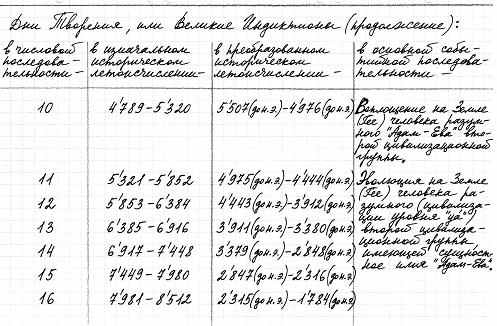 Дни Творения, или Великие Индиктионы (продолжение):
в числовой последова-тельности — в изначальном историческом летоисчислении — в преобразованном историческом летоисчислении — в основной собы-тийной последова-тельности —
10 4'789-5'320 5'507(до н.э)-4'976(до н.э) Воплощение на Земле
(Гее) человека разум-
ного "Адам-Ева" вто-
рой цивилизационной
группы.
11 5'321-5'852 4'975(до н.э)-4'444(до н.э) Эволюция на Земле
(Гее) человека ра-
12 5'853-6'384 4'443(до н.э)-3'912(до н.э) зумного (цивилиза-
ции уровня "уа")
13 6'385-6'916 3'911(до н.э)-3'380(до н.э) второй цивилиза-
ционной группы,
14 6'917-7'448 3'379(до н.э)-2'848(до н.э) имеющей сущност-
ное имя "Адам-Ева".
15 7'449-7'980 2'847(до н.э)-2'316(до н.э)
16 7'981-8'512 2'315(до н.э)-1'784(до н.э)